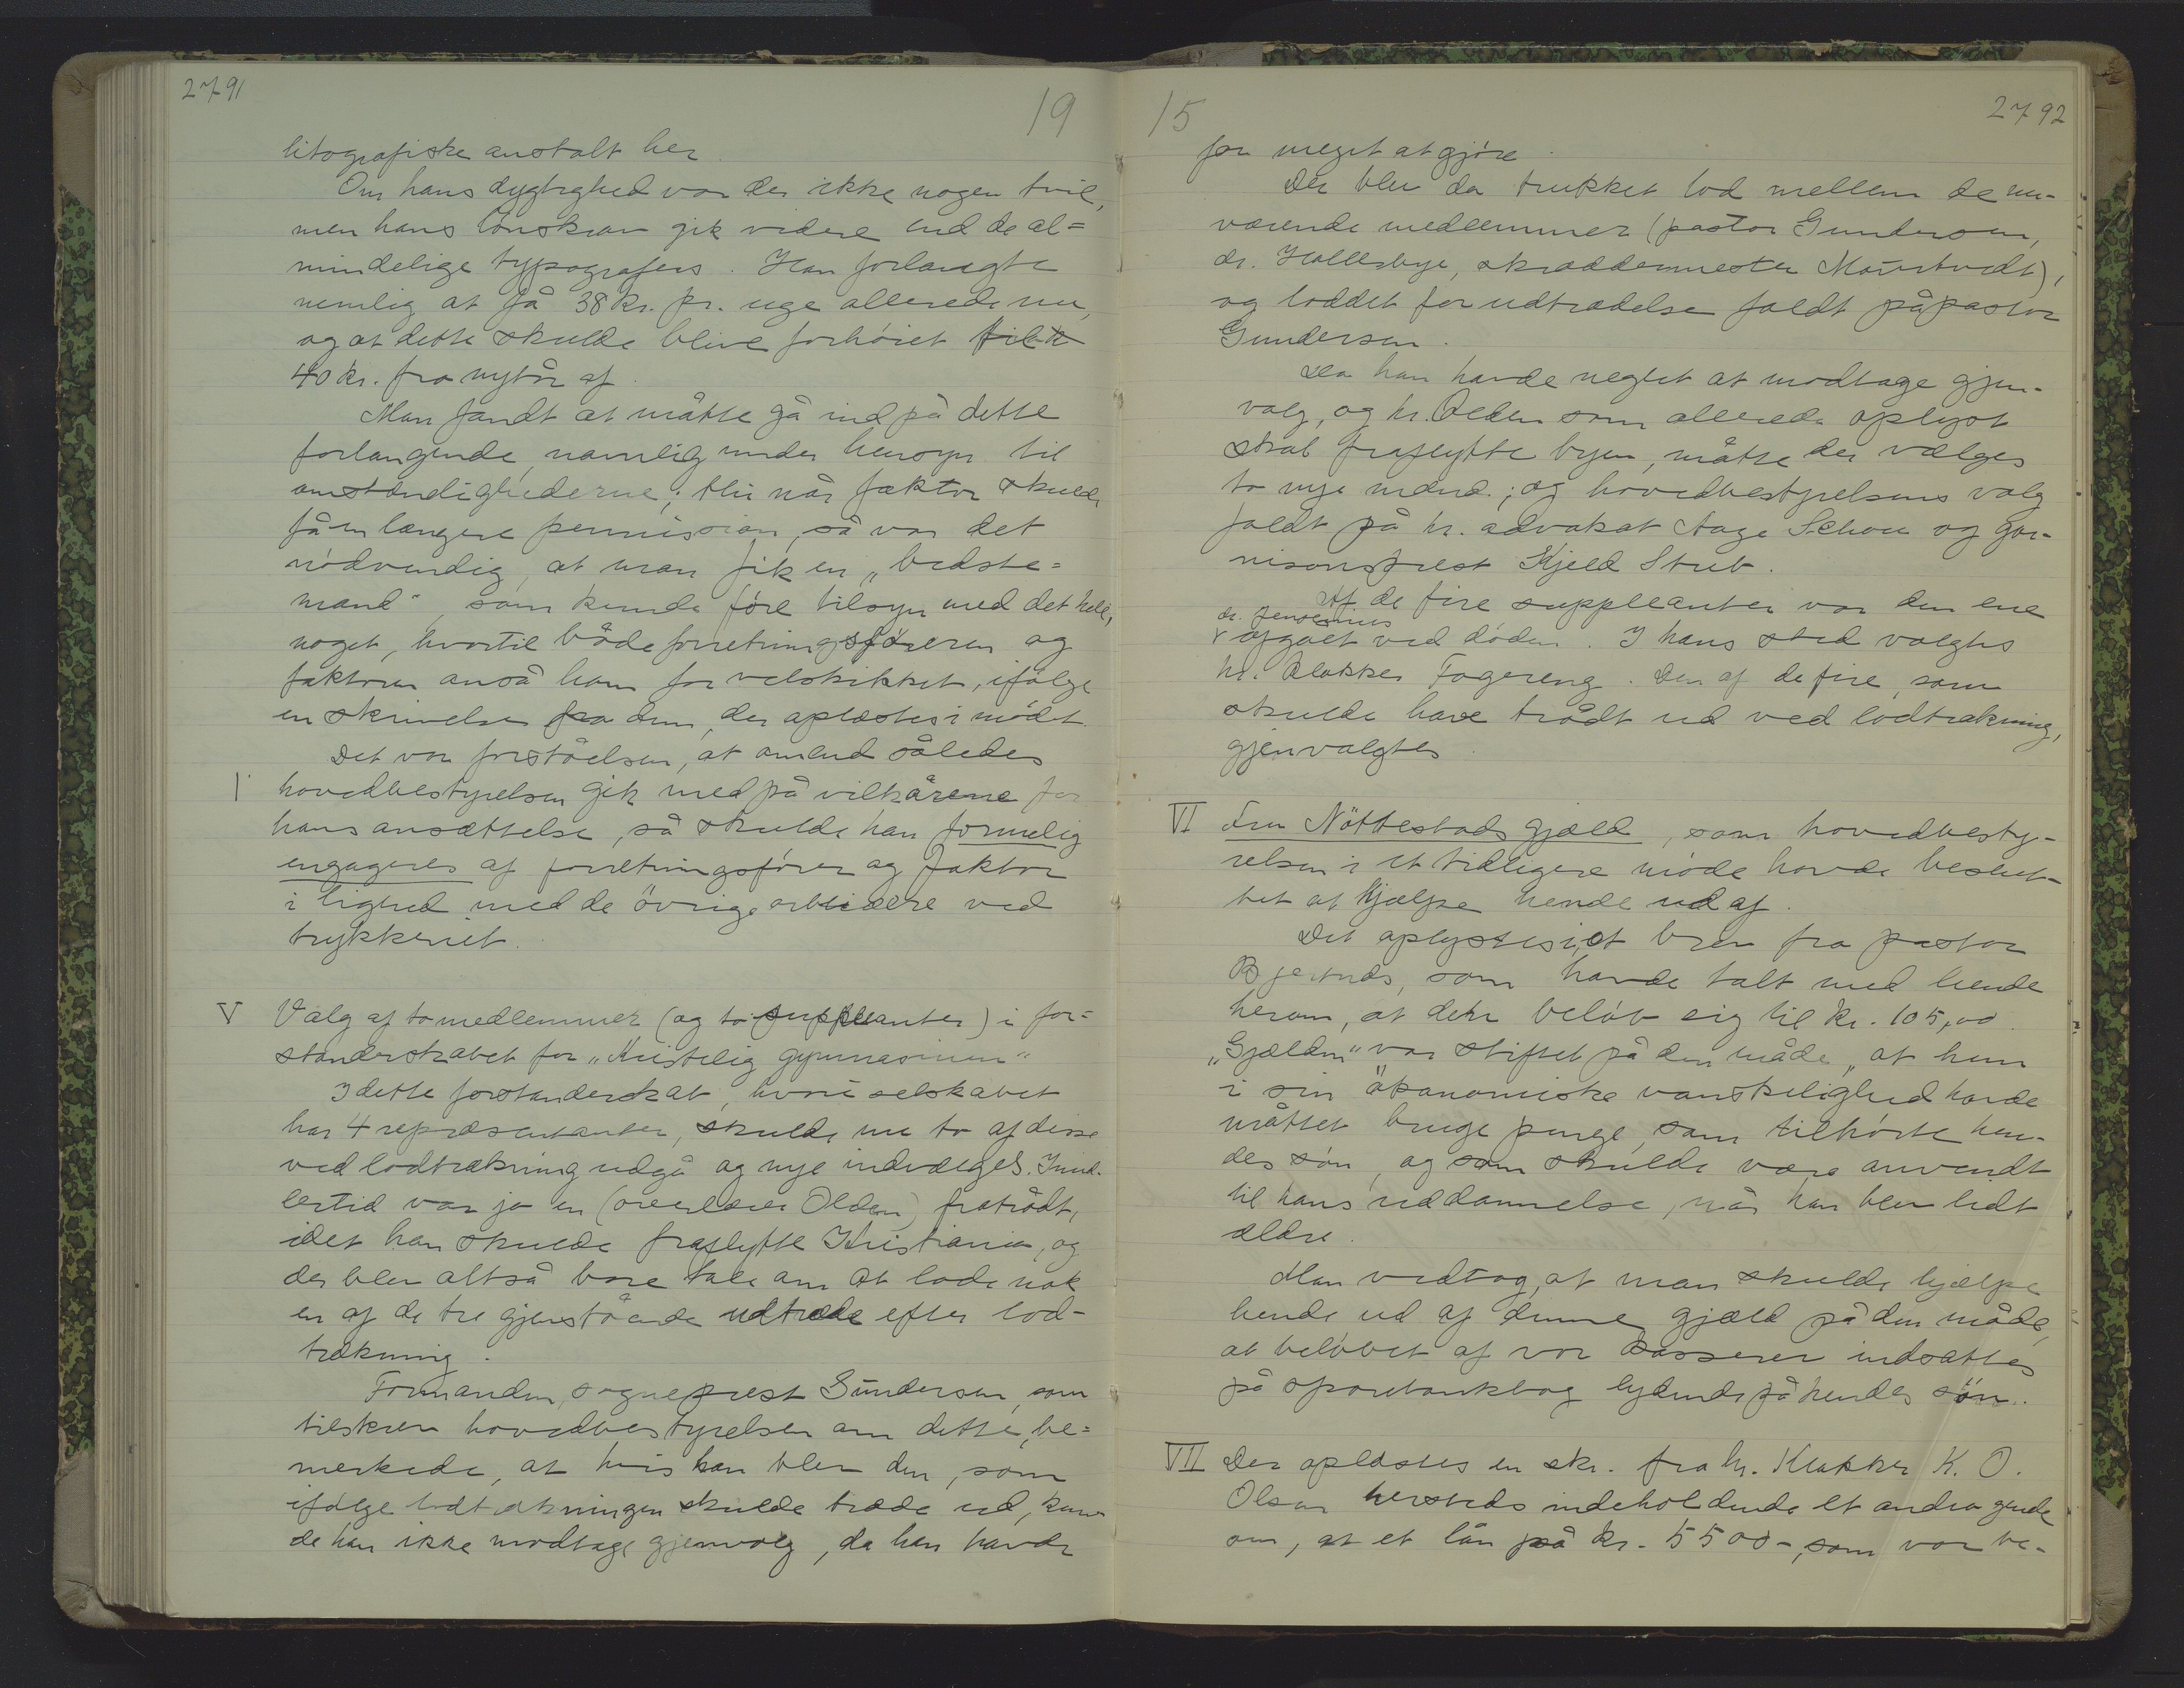 2791
19
litografiske anstalt her.
Om hans dygtighed var der ikke nogen tvil,
men hans lönskrav gik videre end de al=
mindelige typografers. Han forlangte
nemlig at få 38 kr. pr. uge allerede nu,
og at dette skulde blive forhöiet til
40 kr. fra nytår af.
Man fandt at måtte gå ind på dette
forlangende, navnlig under hensyn til
omstændighederne; thi når faktor skulde
få en længere permission, så var det
nödvendig, at man fik en „bedste=
mand", som kunde före tilsyn med det hele,
noget, hvortil både forretningsföreren og
faktoren anså ham for velskikket, ifölge
en skrivelse fra dem, der oplæstes i mödet.
Det var forståelsen, at omend således
hovedbestyrelsen gik med på vilkårene for
hans ansættelse, så skulde han formelig
engageres af forretningsförer og faktor
i lighed med de övrige arbeidere ved
trykkeriet.
V Valg af to medlemmer (og to suppleanter) i for=
standerskabet for „Kristelig gymnasium"
I dette forstanderskab, hvori selskabet
har 4 repræsentanter, skulde nu to af disse
ved lodtrækning udgå og nye indvælges. Imid-
lertid var jo en (overlærer Olden) fratrådt,
idet han skulde fraflytte Kristiania, og
der blev altså bare tale om at lade nok
en af de tre gjenstående udtræde efter lod-
trækning.
Formanden, sogneprest Gundersen, som
tilskrev hovedbestyrelsen om dette, be=
merkede, at hvis han blev den, som
ifölge lodtrækningen skulde træde ud, kun-
de han ikke modtage gjenvalg, da han havde
15
2792
for meget at gjöre.
Der blev da trukket lod mellem de nu-
værende medlemmer (pastor Gundersen,
dr. Hallesbye, skræddermester Mourtvedt),
og loddet for udtrædelse faldt på pastor
Gundersen.
Da han havde neglet at modtage gjen-
valg, og hr. Olden som allerede oplyst
skal fraflytte byen, måtte der vælges
to nye mænd; og hovedbestyrelsens valg
faldt på hr. advokat Aage Schou og gar-
nisonsprest Kjeld Stub.
Af de fire suppleanter var den ene
dr. Jensenius
afgået ved döden. I hans sted valgtes
hr. klokker Fagereng. Den af de fire, som
skulde have trådt ud ved lodtrækning,
gjenvalgtes.
VI Fru Nöttestads gjæld, som hovedbesty-
relsen i et tidligere möde havde beslut-
tet at hjælpe hende ud af.
Det oplystes i et brev fra pastor
Bjertnæs, som havde talt med hende
herom, at den belöb sig til kr. 105,00.
„Gjælden" var stiftet på den måde, at hun
i sin ökonomiske vanskelighed havde
måttet bruge penge, som tilhörte hen-
des sön, og som skulde være anvendt
til hans uddannelse, når han blev lidt
ældre.
Man vedtog, at man skulde hjælpe
hende ud af denne gjæld på den måde,
at belöbet af vor kasserer indsattes
på sparebankbog lydende på hendes sön.
VII Der oplæstes en skr. fra hr. Klokker K. O.
Olsen hersteds indeholdende et andragende
om, at et lån på kr. 5500-, som var be-